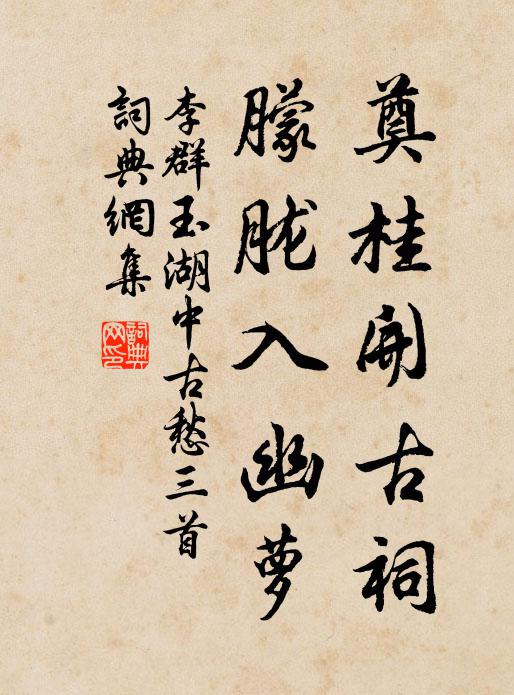 奠桂開古祠
朦朧入幽夢
李群玉湖中古愁三首
詞典網集
詞典網印